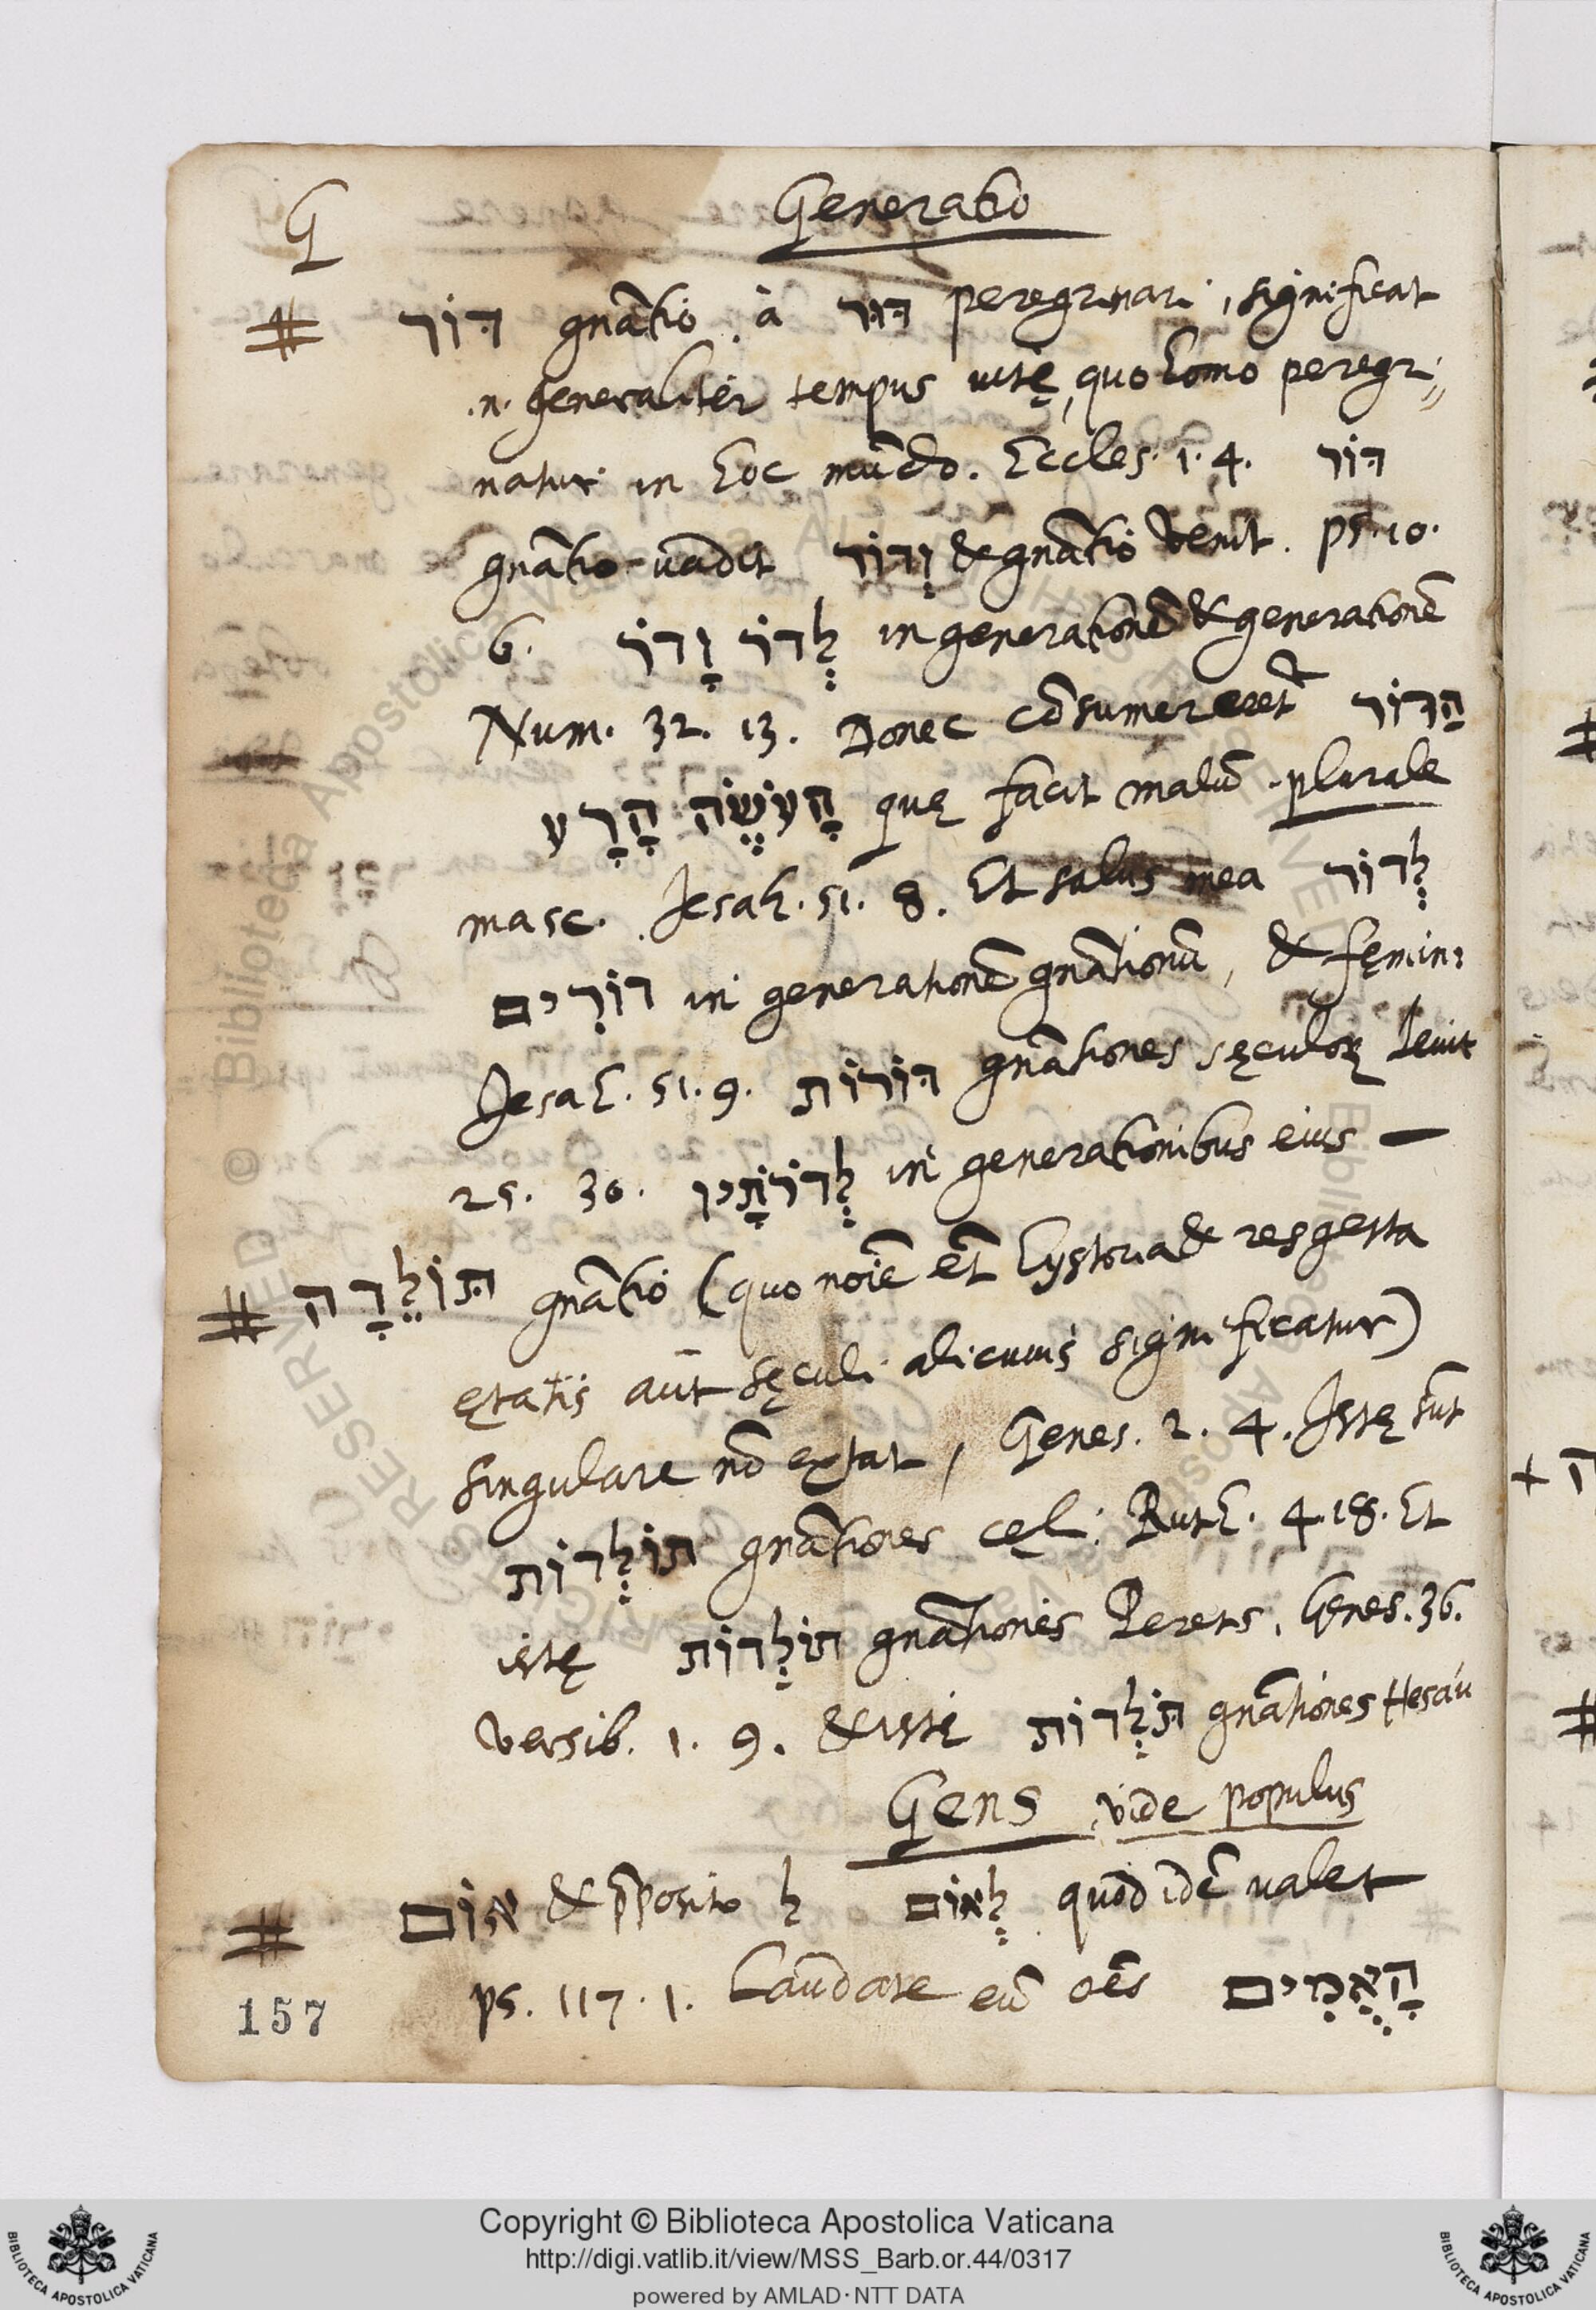 G
Generatio
# דּוֹר gnãtio à דּוּר peregrinari, significat
.n. generaliter tempus uitę, quo homo peregr//
natur in hoc mũdo. Eccles. 1. 4. דּוֹר
gnãtio uadit וְדוֹר & gnãtio venit. ps. 10.
6. לְדֹר וָדֹר in generationẽ & generationẽ
Num. 32. 13. Donec cõsumereret הַדּוֹר
הָעֹשֶׂה הָרָע quę facit malũ. plurale
masc. Jesah. 51. 8. Et salus mea לְדוֹר
דּוֹרִים in generationẽ gnãtionũ, & fęmin:
Jesah. 51. 9. דּוֹרוֹת gnãtiones sęculoꝝ Leuit
25. 30. לְדֹרֹתָיו in generationibus eius —
# תּוֹלֵדָה gnãtio (quo noĩe et̃ hystoria & res gesta
ętatis aut sęculi alicuius significatur)
singulare nõ extat, Genes. 2. 4. Istę sũt
תוֹלְדוֹת gnãtiones cęli. Ruth. 4. 18. Et
istę תוֹלְדוֹת gnãtiones Perets. Genes. 36.
versib. 1. 9. & istę תֹּלְדוֹת gnãtiones Hesau
Gens vide populus
# אוֹם & p̃posito ל לְאוֹם quod idẽ ualet
ps. 117. 1. Laudate eũ oẽs הָאֻמִּים
157
ה +
Copyright © Biblioteca Apostolica Vaticana
http://digi.vatlib.it/view/MSS_Barb.or.44/0317
powered by AMLAD·NTT DATA
BIBLIOTECA APOSTOLICA VATICANA
BIBLIOTECA APOSTOLICA VATICANA